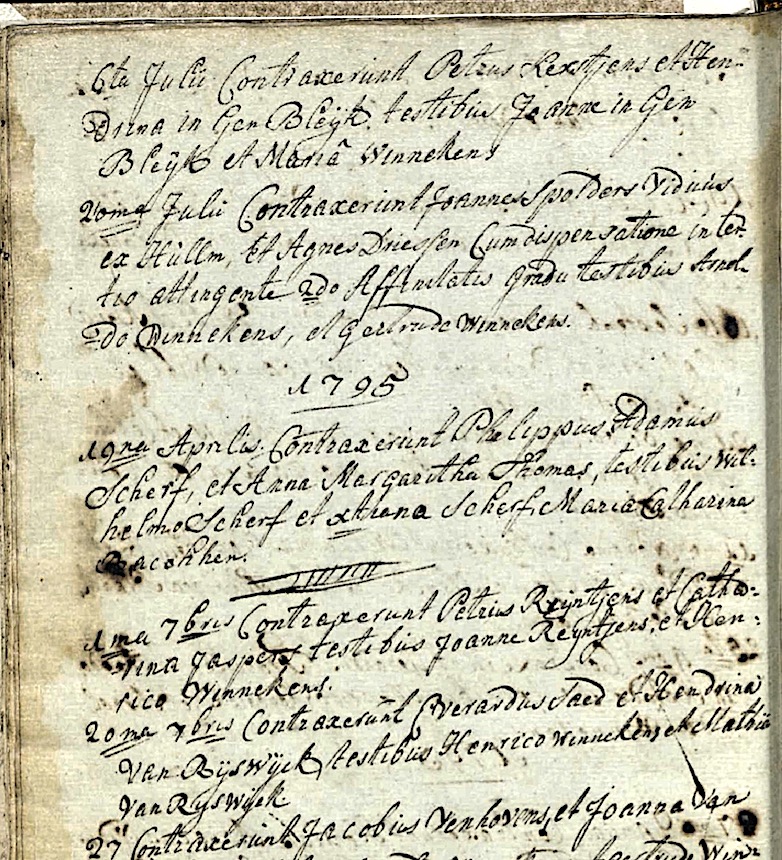 6ta Julii Contraxerunt Petrus Kerstjens et Hen-
drina in Gen Bleijk testibus Joanne in Gen
Bleijk et Mariâ Winnekens
20ma Julii Contraxerunt Joannes Spolders Viduus
ex Hüllm, et Agnes Driessen Cum dispensatione in ter-
tio attingente 2do Affinitatis gradu testibus Arnol-
do Winnekens, et gertrude Winnekens.
1795
19na Aprilis Contraxerunt Phelippus Adamus
Scherf, et Anna Margaritha Thomas, testibus Wil-
helmo Scherf et Scherf Maria Catharina
1ma 7bris Contraxerunt Petrus Reijntjens et Catha-
rina Jaspers testibus Joanne Reijntjens, et Hen-
rico Winnekens.
20ma 7bris Contraxerunt Everardus Saed et Hendrina
Van Rijswijck, testibus Henrico Winnekens et Mathia
Van Rijswijck
27 Contraxerunt Jacobus Venhovens, et Joanna Van